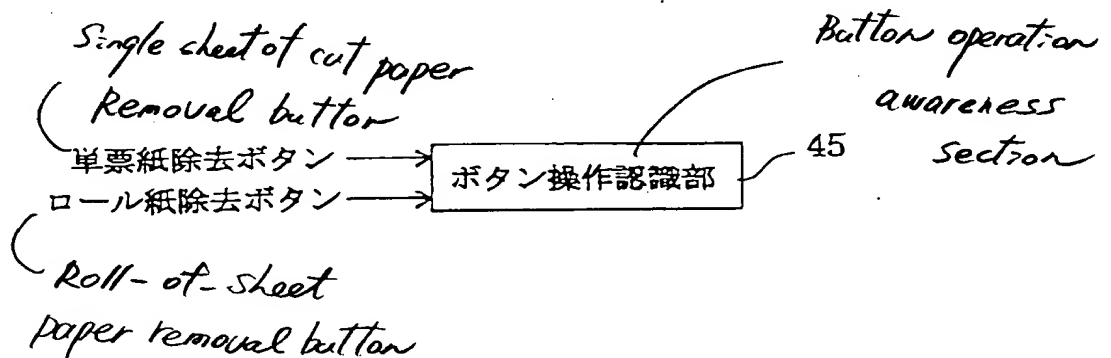 Single sheet of cut paper
Removal button
Button operation
awareness
section
単票紙除去ボタン
ロール紙除去ボタン
ボタン操作認識部
45
Roll-of-sheet
paper removal button